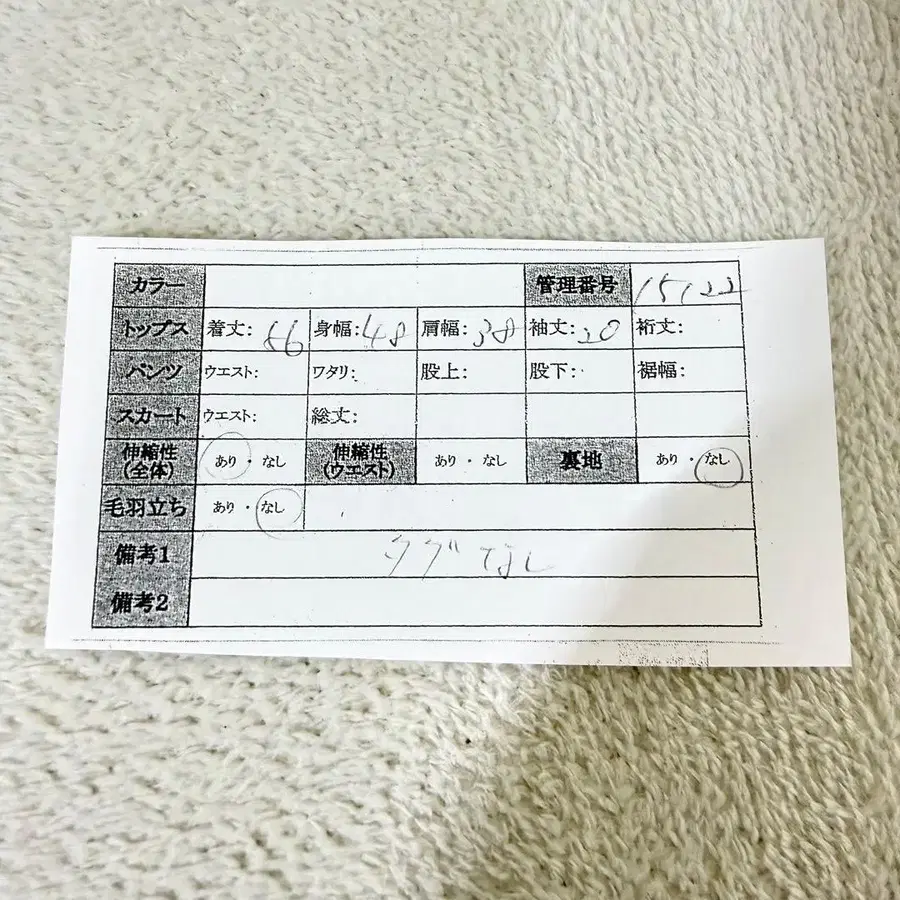 カラー 管理番号 15122
トップス 着丈:56 身幅:48 肩幅:38 袖丈:20 裄丈:
パンツ ウエスト: ワタリ: 股上: 股下: 裾幅:
スカート ウエスト: 総丈:
伸縮性(全体) あり・なし 伸縮性(ウエスト) あり・なし 裏地 あり・なし
毛羽立ち あり・なし
備考1 タグなし
備考2